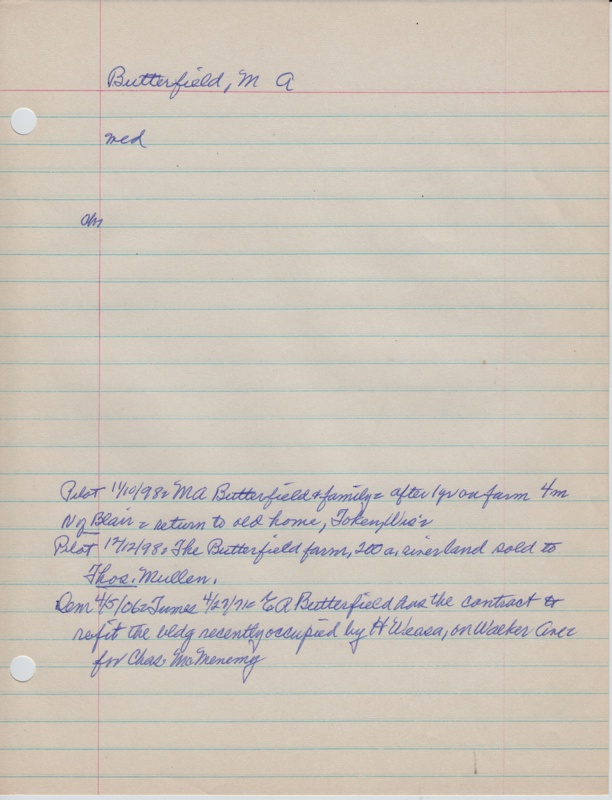 Butterfield, M A
med
ch
Pilot 11/10/98= MA Butterfield & family= after 1 yr on farm 4m
N of Blair = return to old home, Token, Wis=
Pilot 12/98= The Butterfield farm, 200 a, riverland sold to
Thos. Mullen.
Dem 4/5/06=Times 4/27/71= A Butterfield has the contract to
refit the bldg recently occupied by H on Walker Ave=
for Chas. McMenemy